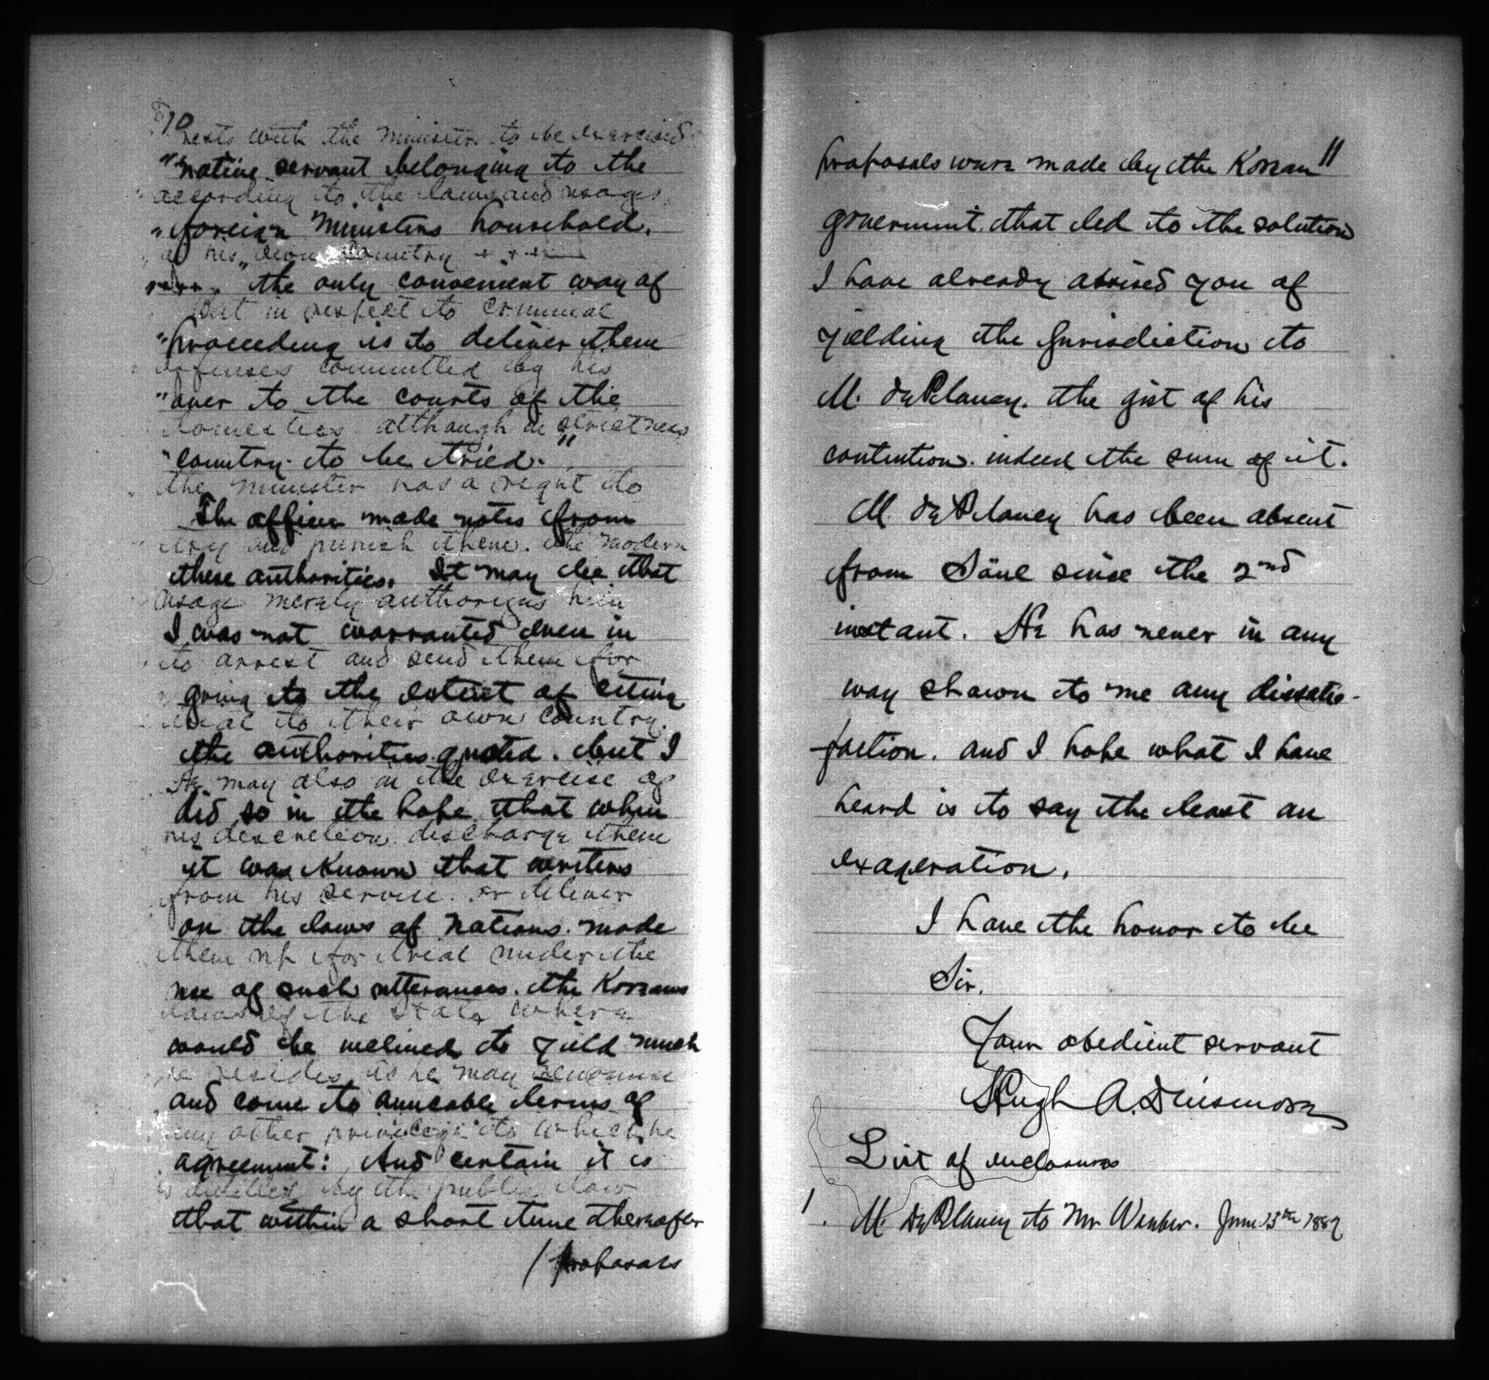 10
rests with the minister to be exercised
"native servant belonging to the
according to the laws and usages
"foreign Ministers household.
of his own country + + +
the only convenient way of
but in respect to criminal
"proceeding is to deliver them
offenses committed by his
"over to the courts of the
domestics although in strictness
"country to be tried."
the minister has a right to
The officer made notes from
try and punish them. the modern
these authorities. It may be that
usage merely authorizes him
I was not warranted even in
to arrest and send them for
going to the extent of citing
trial to their own country.
the authorities quoted. but I
He may also in the exercise of
did so in the hope that when
his descretion discharge them
it was known that writers
from his service. or deliver
on the laws of nations made
them up for trial under the
use of such utterances. the Koreans
laws of the State where
would be inclined to yield much
he resides as he may renounce
and come to amicable terms of
any other privilege to which he
agreement: And certain it is
is entitled by the public law
that within a short time thereafter
/ proposals
11
proposals were made by the Korean
government that led to the solution
I have already advised you of
yielding the Jurisdiction to
M. du Plancy. the gist of his
contention. indeed the sum of it.
M. du Plancy has been absent
from Söul since the 2nd
instant. He has never in any
way shown to me any dissatis-
faction. and I hope what I have
heard is to say the least an
exageration.
I have the honor to be
Sir.
Your obedient servant
Hugh A. Dinsmore
List of enclosures
1. M. Du Plancy to Mr Waeber. June 13th 1889